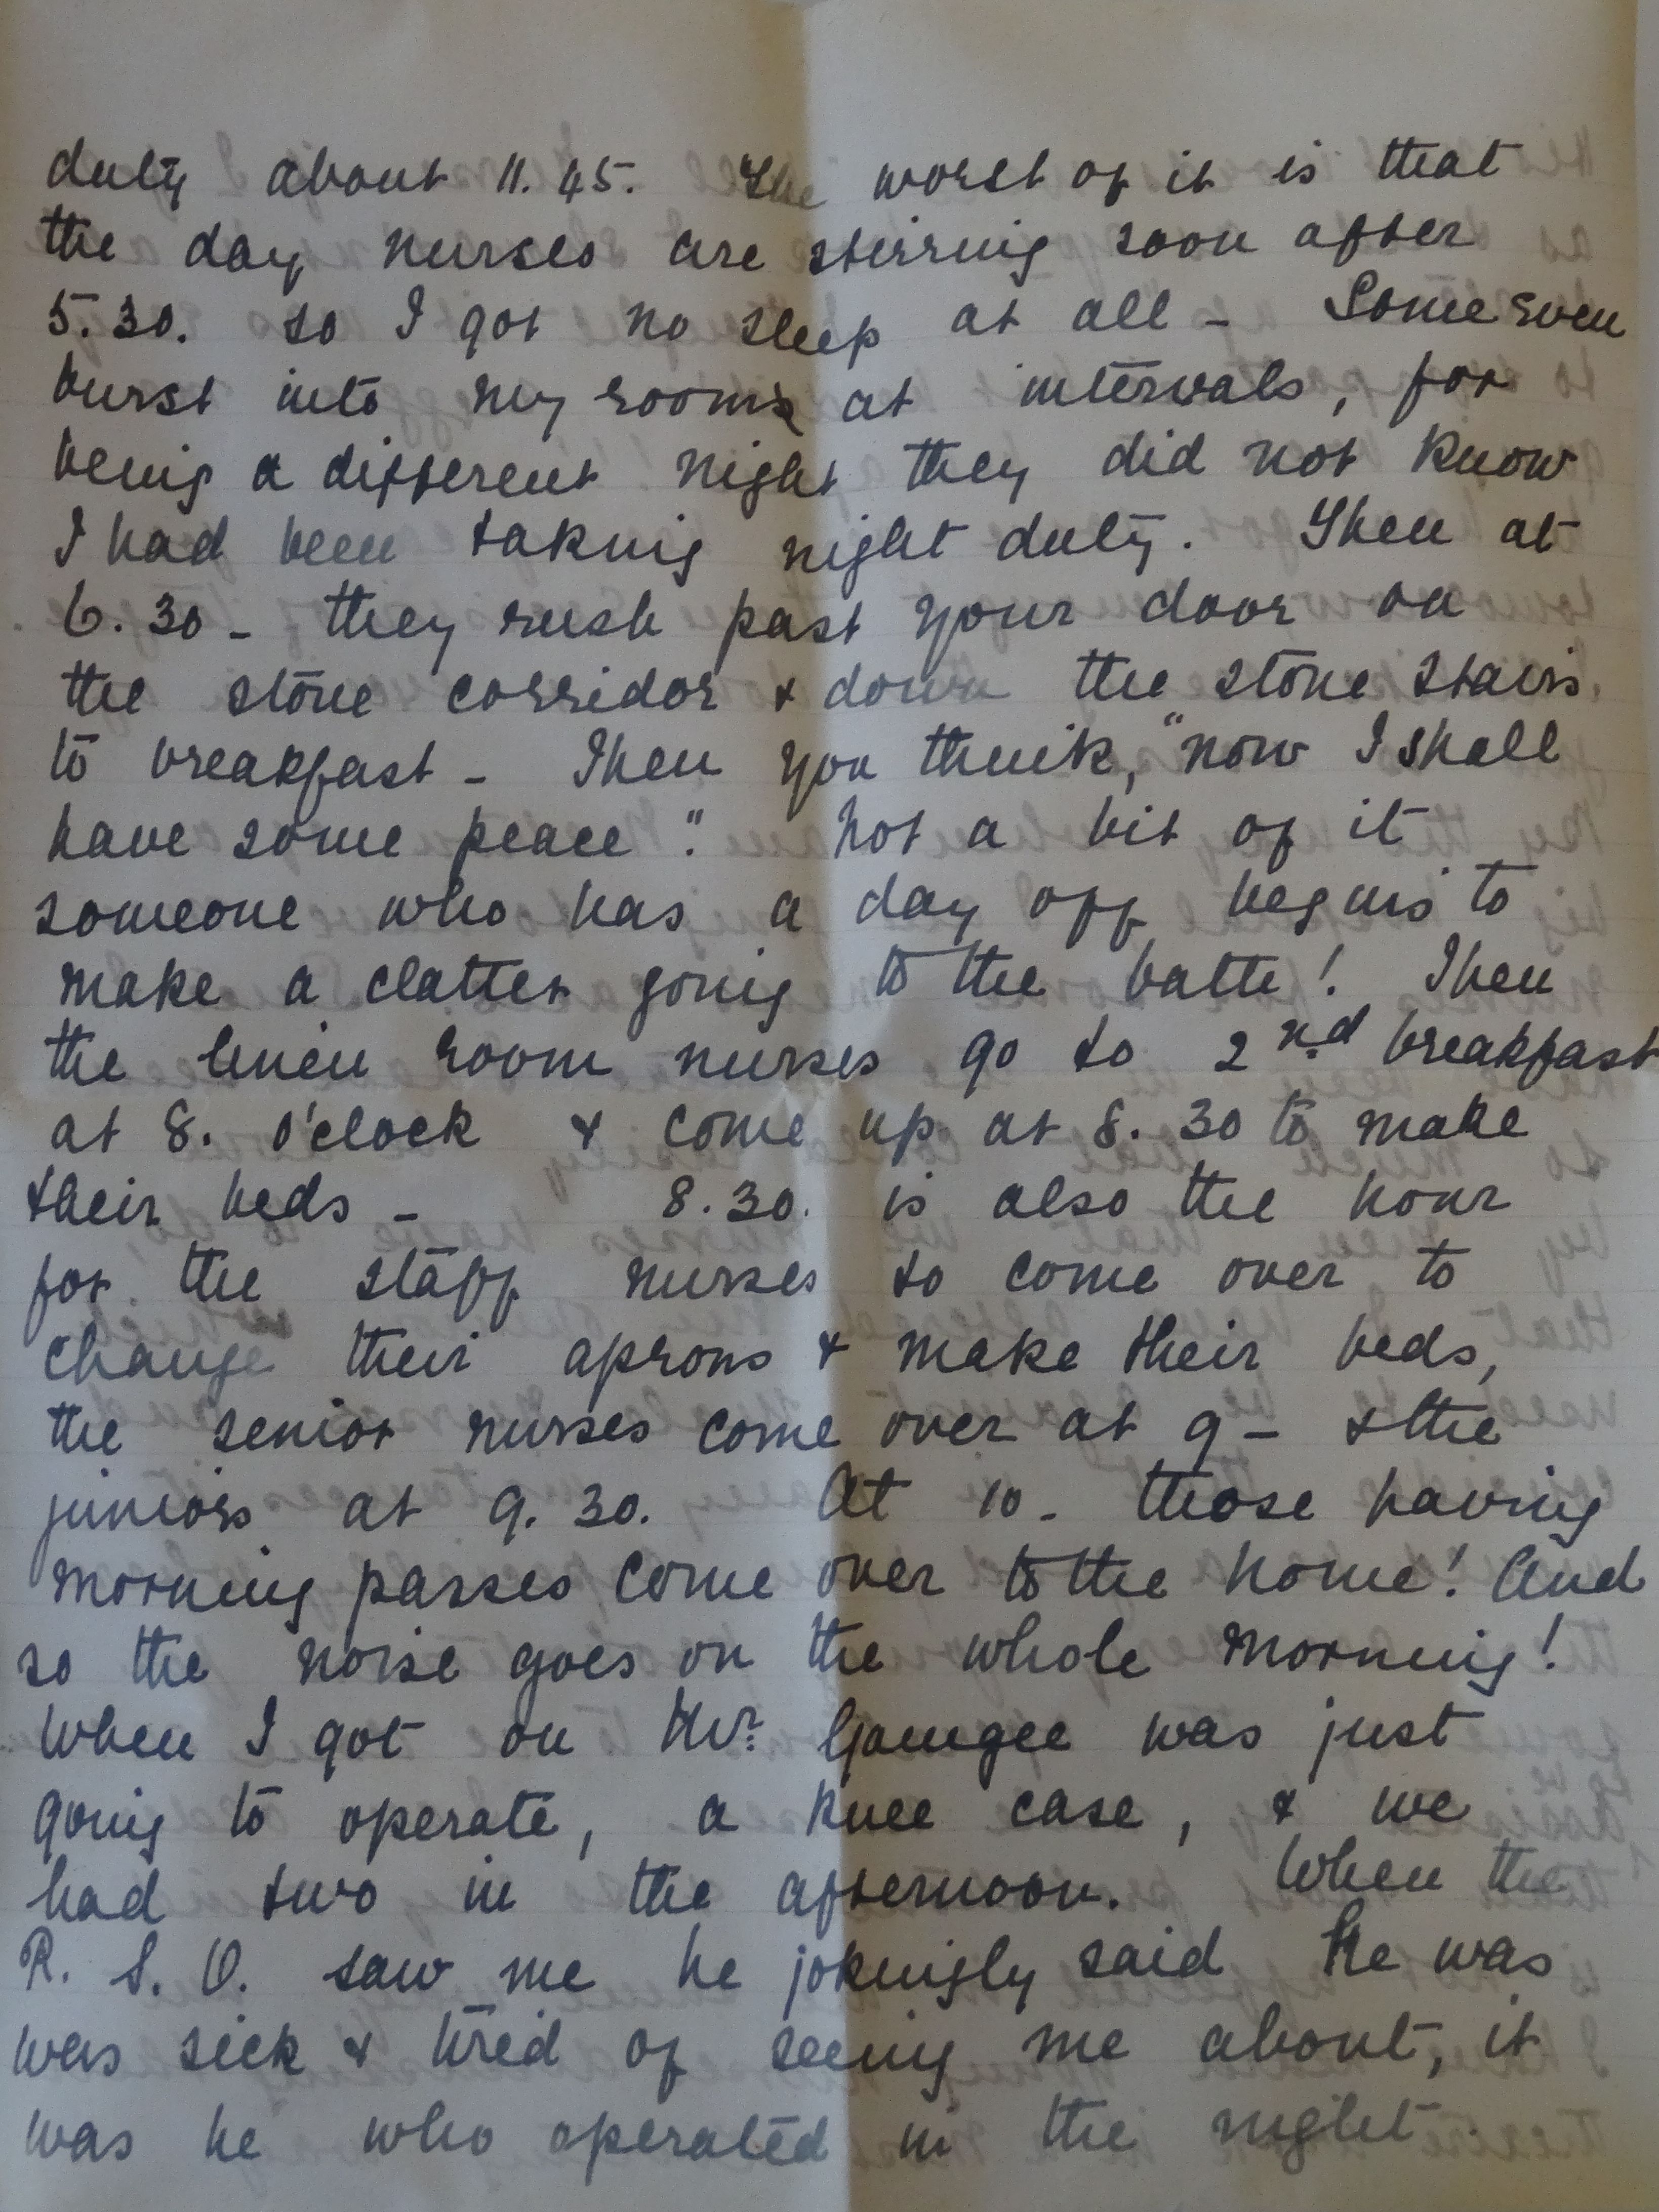 duty about 11.45. The worst of it is that
the day nurses are stirring soon after
5.30. so I got no sleep at all - Some even
burst into my room at intervals, for
being a different night they did not know
I had been taking night duty. Then at
6.30 - they rush past your door on
the stone corridor & down the stone stairs
to breakfast - Then you think, "now I shall
have some peace". Not a bit of it
someone who has a day off begins to
make a clatter going to the bath! Then
the linen room nurses go to 2nd breakfast
at 8. o'clock & come up at 8.30 to make
their beds - 8.30. is also the hour
for the staff nurses to come over to
change their aprons & make their beds,
the senior nurses come over at 9 - & the
juniors at 9.30. At 10 - those having
morning passes come over to the home! And
so the noise goes on the whole morning!
When I got on Mr. Gamgee was just
going to operate, a knee case, & we
had two in the afternoon. When the
R. S. O. saw me he jokingly said he was
was sick & tired of seeing me about, it
was he who operated in the night.